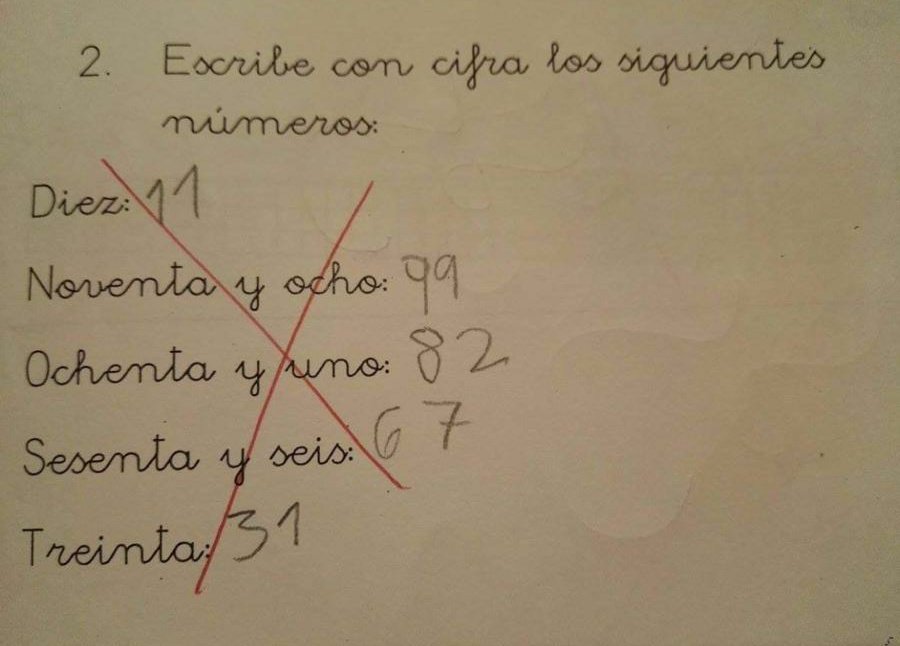 2. Escribe con cifra los siguientes
números:
Diez: 11
Noventa y ocho: 99
Ochenta y uno: 82
Sesenta y seis: 67
Treinta: 31